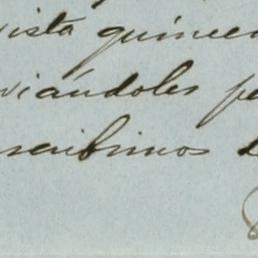 vista quincen
viándoles pe
scribimos d